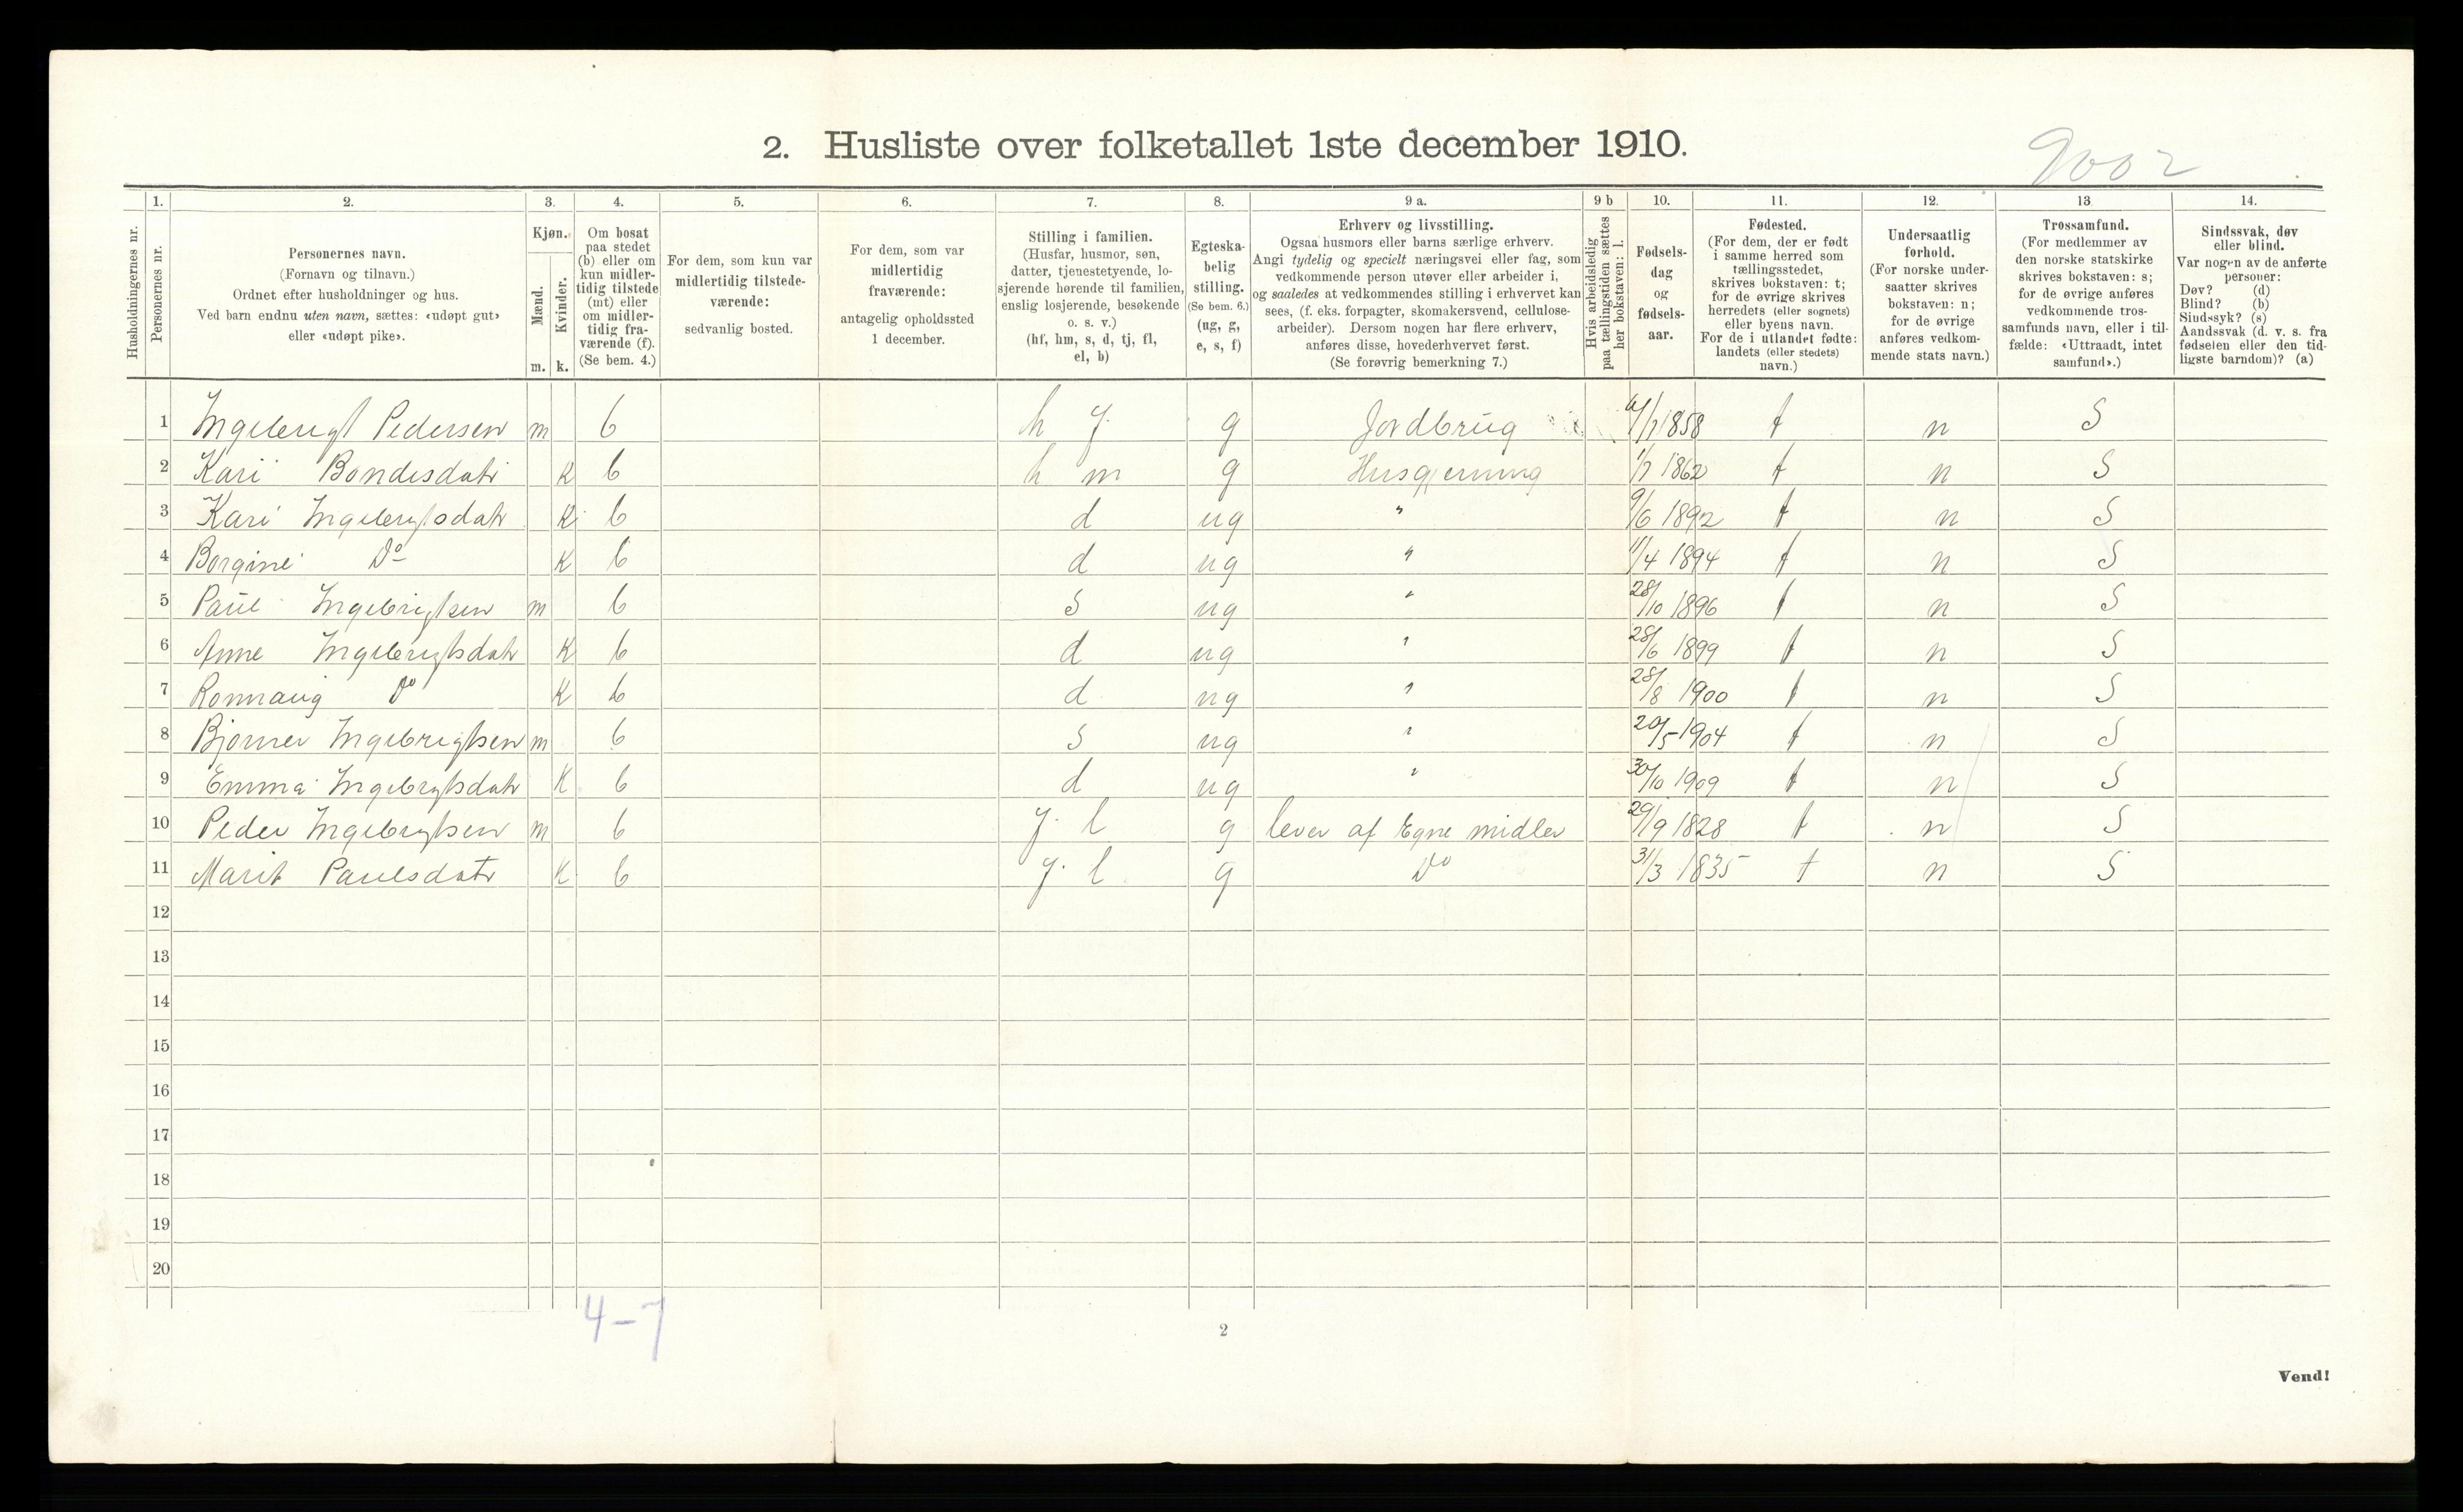 2. Husliste over folketallet 1ste december 1910.
9002
Husholdningernes nr.
1.
Personernes nr.
2.
Personernes navn.
(Fornavn og tilnavn.)
Ordnet efter husholdninger og hus.
Ved barn endnu uten navn, sættes: «udøpt gut»
eller «udøpt pike».
3.
Kjøn.
Mænd.
m.
Kvinder.
k.
4.
Om bosat
paa stedet
(b) eller om
kun midler-
tidig tilstede
(mt) eller
om midler-
tidig fra-
værende (f).
(Se bem. 4.)
5.
For dem, som kun var
midlertidig tilstede-
værende:
sedvanlig bosted.
6.
For dem, som var
midlertidig
fraværende:
antagelig opholdssted
1 december.
7.
Stilling i familien.
(Husfar, husmor, søn,
datter, tjenestetyende, lo-
sjerende hørende til familien,
enslig losjerende, besøkende
o. s. v.)
(hf, hm, s, d, tj, fl,
el, b)
8.
Egteska-
belig
stilling.
(Se bem. 6.)
(ug, g,
e, s, f)
9 a.
Erhverv og livsstilling.
Ogsaa husmors eller barns særlige erhverv.
Angi tydelig og specielt næringsvei eller fag, som
vedkommende person utøver eller arbeider i,
og saaledes at vedkommendes stilling i erhvervet kan
sees, (f. eks. forpagter, skomakersvend, cellulose-
arbeider). Dersom nogen har flere erhverv,
anføres disse, hovederhvervet først.
(Se forøvrig bemerkning 7.)
9 b
Hvis arbeidsledig
paa tællingstiden sættes
her bokstaven: l.
10.
Fødsels-
dag
og
fødsels-
aar.
11.
Fødested.
(For dem, der er født
i samme herred som
tællingsstedet,
skrives bokstaven: t;
for de øvrige skrives
herredets (eller sognets)
eller byens navn.
For de i utlandet fødte:
landets (eller stedets)
navn.)
12.
Undersaatlig
forhold.
(For norske under-
saatter skrives
bokstaven: n;
for de øvrige
anføres vedkom-
mende stats navn.)
13
Trossamfund.
(For medlemmer av
den norske statskirke
skrives bokstaven: s;
for de øvrige anføres
vedkommende tros-
samfunds navn, eller i til-
fælde: «Uttraadt, intet
samfund».)
14.
Sindssvak, døv
eller blind.
Var nogen av de anførte
personer:
Døv? (d)
Blind? (b)
Sindssyk? (s)
Aandssvak (d. v. s. fra
fødselen eller den tid-
ligste barndom)? (a)
1 Ingebrigt Pedersen m b h f g Jordbrug 1858 t n S
2 Kari Bondesdatr K b h m g Husgjerning 1/7 1862 t n S
3 Kari Ingebrigtsdatr K b d ug " 9/6 1892 t n S
4 Borgine Do K b d ug " 11/4 1894 t n S
5 Paul Ingebrigtsen m b S ug " 28/10 1896 t n S
6 Anne Ingebrigtsdatr K b d ug " 28/6 1899 t n S
7 Ronnaug Do K b d ug " 28/8 1900 t n S
8 Bjørner Ingebrigtsen m b S ug " 20/5 1904 t n S
9 Emma Ingebrigtsdatr K b d ug " 30/10 1909 t n S
10 Peder Ingebrigtsen m b f. l g lever af Egne midler 29/9 1828 t n S
11 Marit Paulsdatr K b f. l g Do 31/3 1835 t n S
12
13
14
15
16
17
18
19
20
4-7
2
Vend!